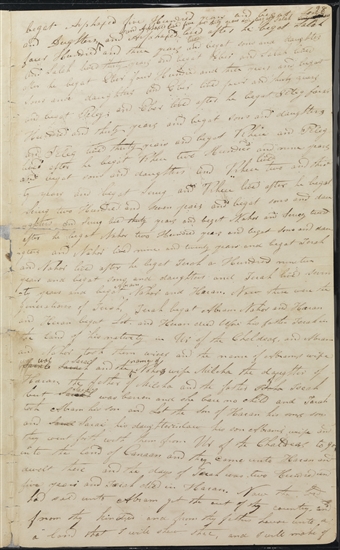 begat Arphaxad five Hundred years and begat sons
and Daughters
four Hundred and three years and begat sons and daughters
and Salah lived thirty years and begat Eber and Salah lived
after he begat Eber four Hundred and three years and begat
sons and daughters and Eber lived four and thirty years
and begat Peleg and Eber lived after he begat Peleg four
Hundred and thirty years and begat sons and daughters
and Peleg lived thirty years and begat Reu and Peleg
lived after he begat Reu two Hundred and nine years
and begat sons and daughters and Reu lived two and thirty
years and begat Serug and Reu lived after he begat
Serug two Hundred and seven years and begat sons and
daughters and Serug lived thirty years and begat Nahor and Serug lived
after he begat Nahor two Hundred years and begat sons and
daughters and Nahor lived nine and twenty years and begat Terah
and Nahor lived after he begat Terah a Hundred nineteen
years and begat sons and daughters and Terah lived
years and begat Nahor and Haran Now these were the
generations of Terah Terah begat Abram Nahor and Haran
and Haran begat Lot and Haran died before his father Terah in
the land of his nativity in Ur of the Chaldees and Abram
and Nahor took them wives and the name of Abrams wife
was Sarai and the Nahors wife Milcah the daughter
Haran the father of Milcah and the father
but Sarai was barren and she bare no child and Terah
took Abram his son and Lot the son of Haran his sons son
and Sarai his daughter in law his son Abrams wife and
they went forth with them from Ur of the Chaldees to go
into the land of Canaan and they came unto Haran and
dwelt there and the days of Terah was two Hundred and
five years and Terah died in Haran Now the
had said unto Abram get thee out of thy country and
from thy kindred and from thy father house unto
a land that I will shew thee and I will make of